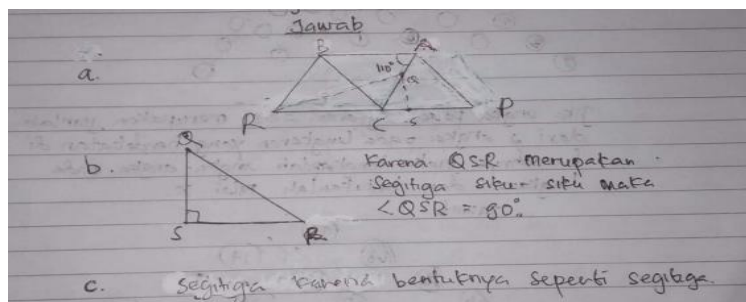 Jawab
a.
B A
110°
Q
R C S P
b.
Q
S R
Karena QSR merupakan
Segitiga siku-siku maka
∠QSR = 90°
c. Segitiga karena bentuknya seperti segitiga.